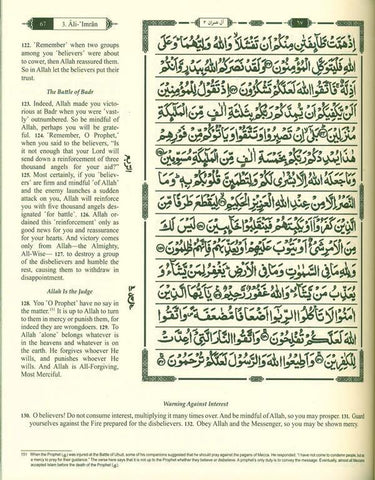 67
3. Âli-'Imrân
اٰل عمرٰن ٣
٦٧
122. 'Remember' when two groups
among you 'believers' were about
to cower, then Allah reassured them.
So in Allah let the believers put their
trust.
The Battle of Badr
123. Indeed, Allah made you victo-
rious at Badr when you were 'vast-
ly' outnumbered. So be mindful of
Allah, perhaps you will be grate-
ful. 124. 'Remember, O Prophet,'
when you said to the believers, "Is
it not enough that your Lord will
send down a reinforcement of three
thousand angels for your aid?"
125. Most certainly, if you 'believ-
ers' are firm and mindful 'of Allah'
and the enemy launches a sudden
attack on you, Allah will reinforce
you with five thousand angels des-
ignated 'for battle'. 126. Allah or-
dained this 'reinforcement' only as
good news for you and reassurance
for your hearts. And victory comes
only from Allah—the Almighty,
All-Wise— 127. to destroy a group
of the disbelievers and humble the
rest, causing them to withdraw in
disappointment.
Allah Is the Judge
128. You 'O Prophet' have no say in
the matter.¹⁵¹ It is up to Allah to turn
to them in mercy or punish them, for
indeed they are wrongdoers. 129. To
Allah 'alone' belongs whatever is
in the heavens and whatever is on
the earth. He forgives whoever He
wills, and punishes whoever He
wills. And Allah is All-Forgiving,
Most Merciful.
اِذْ هَمَّتْ طَّآئِفَتٰنِ مِنْكُمْ اَنْ تَفْشَلَا وَاللّٰهُ وَلِيُّهُمَا وَعَلَى
اللّٰهِ فَلْيَتَوَكَّلِ الْمُؤْمِنُوْنَ وَلَقَدْ نَصَرَكُمُ اللّٰهُ بِبَدْرٍ وَّاَنْتُمْ
اَذِلَّةٌ فَاتَّقُوا اللّٰهَ لَعَلَّكُمْ تَشْكُرُوْنَ اِذْ تَقُوْلُ لِلْمُؤْمِنِيْنَ
اَلَنْ يَّكْفِيَكُمْ اَنْ يُّمِدَّكُمْ رَبُّكُمْ بِثَلٰثَةِ اٰلَافٍ مِّنَ الْمَلٰٓئِكَةِ
مُنْزَلِيْنَ بَلٰٓى اِنْ تَصْبِرُوْا وَتَتَّقُوْا وَيَاْتُوْكُمْ مِّنْ فَوْرِهِمْ
هٰذَا يُمْدِدْكُمْ رَبُّكُمْ بِخَمْسَةِ اٰلَافٍ مِّنَ الْمَلٰٓئِكَةِ مُسَوِّمِيْنَ
وَمَا جَعَلَهُ اللّٰهُ اِلَّا بُشْرٰى لَكُمْ وَلِتَطْمَئِنَّ قُلُوْبُكُمْ بِهٖ وَمَا
النَّصْرُ اِلَّا مِنْ عِنْدِ اللّٰهِ الْعَزِيْزِ الْحَكِيْمِ لِيَقْطَعَ طَرَفًا مِّنَ
الَّذِيْنَ كَفَرُوْٓا اَوْ يَكْبِتَهُمْ فَيَنْقَلِبُوْا خَآئِبِيْنَ لَيْسَ لَكَ
مِنَ الْاَمْرِ شَيْءٌ اَوْ يَتُوْبَ عَلَيْهِمْ اَوْ يُعَذِّبَهُمْ فَاِنَّهُمْ ظٰلِمُوْنَ
وَلِلّٰهِ مَا فِى السَّمٰوٰتِ وَمَا فِى الْاَرْضِ يَغْفِرُ لِمَنْ يَّشَآءُ وَ
يُعَذِّبُ مَنْ يَّشَآءُ وَاللّٰهُ غَفُوْرٌ رَّحِيْمٌ يٰٓاَيُّهَا الَّذِيْنَ
اٰمَنُوْا لَا تَاْكُلُوا الرِّبٰٓوا اَضْعَافًا مُّضٰعَفَةً وَّاتَّقُوا
اللّٰهَ لَعَلَّكُمْ تُفْلِحُوْنَ وَاتَّقُوا النَّارَ الَّتِىْٓ اُعِدَّتْ
لِلْكٰفِرِيْنَ وَاَطِيْعُوا اللّٰهَ وَالرَّسُوْلَ لَعَلَّكُمْ تُرْحَمُوْنَ
Warning Against Interest
130. O believers! Do not consume interest, multiplying it many times over. And be mindful of Allah, so you may prosper. 131. Guard
yourselves against the Fire prepared for the disbelievers. 132. Obey Allah and the Messenger, so you may be shown mercy.
151 When the Prophet (ﷺ) was injured at the Battle of Uḥud, some of his companions suggested that he should pray against the pagans of Mecca. He responded, "I have not come to condemn people, but as
a mercy to pray for their guidance." The verse here says that it is not up to the Prophet whether they believe or disbelieve. A prophet's only duty is to convey the message. Eventually, almost all Meccans
accepted Islam before the death of the Prophet (ﷺ).